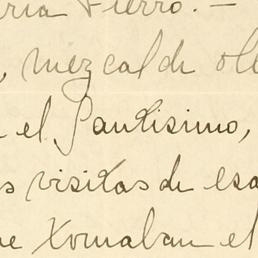 Fierro. -
, mezcal de ol
el Santisimo,
s visitas de esa
ue Xomaban el